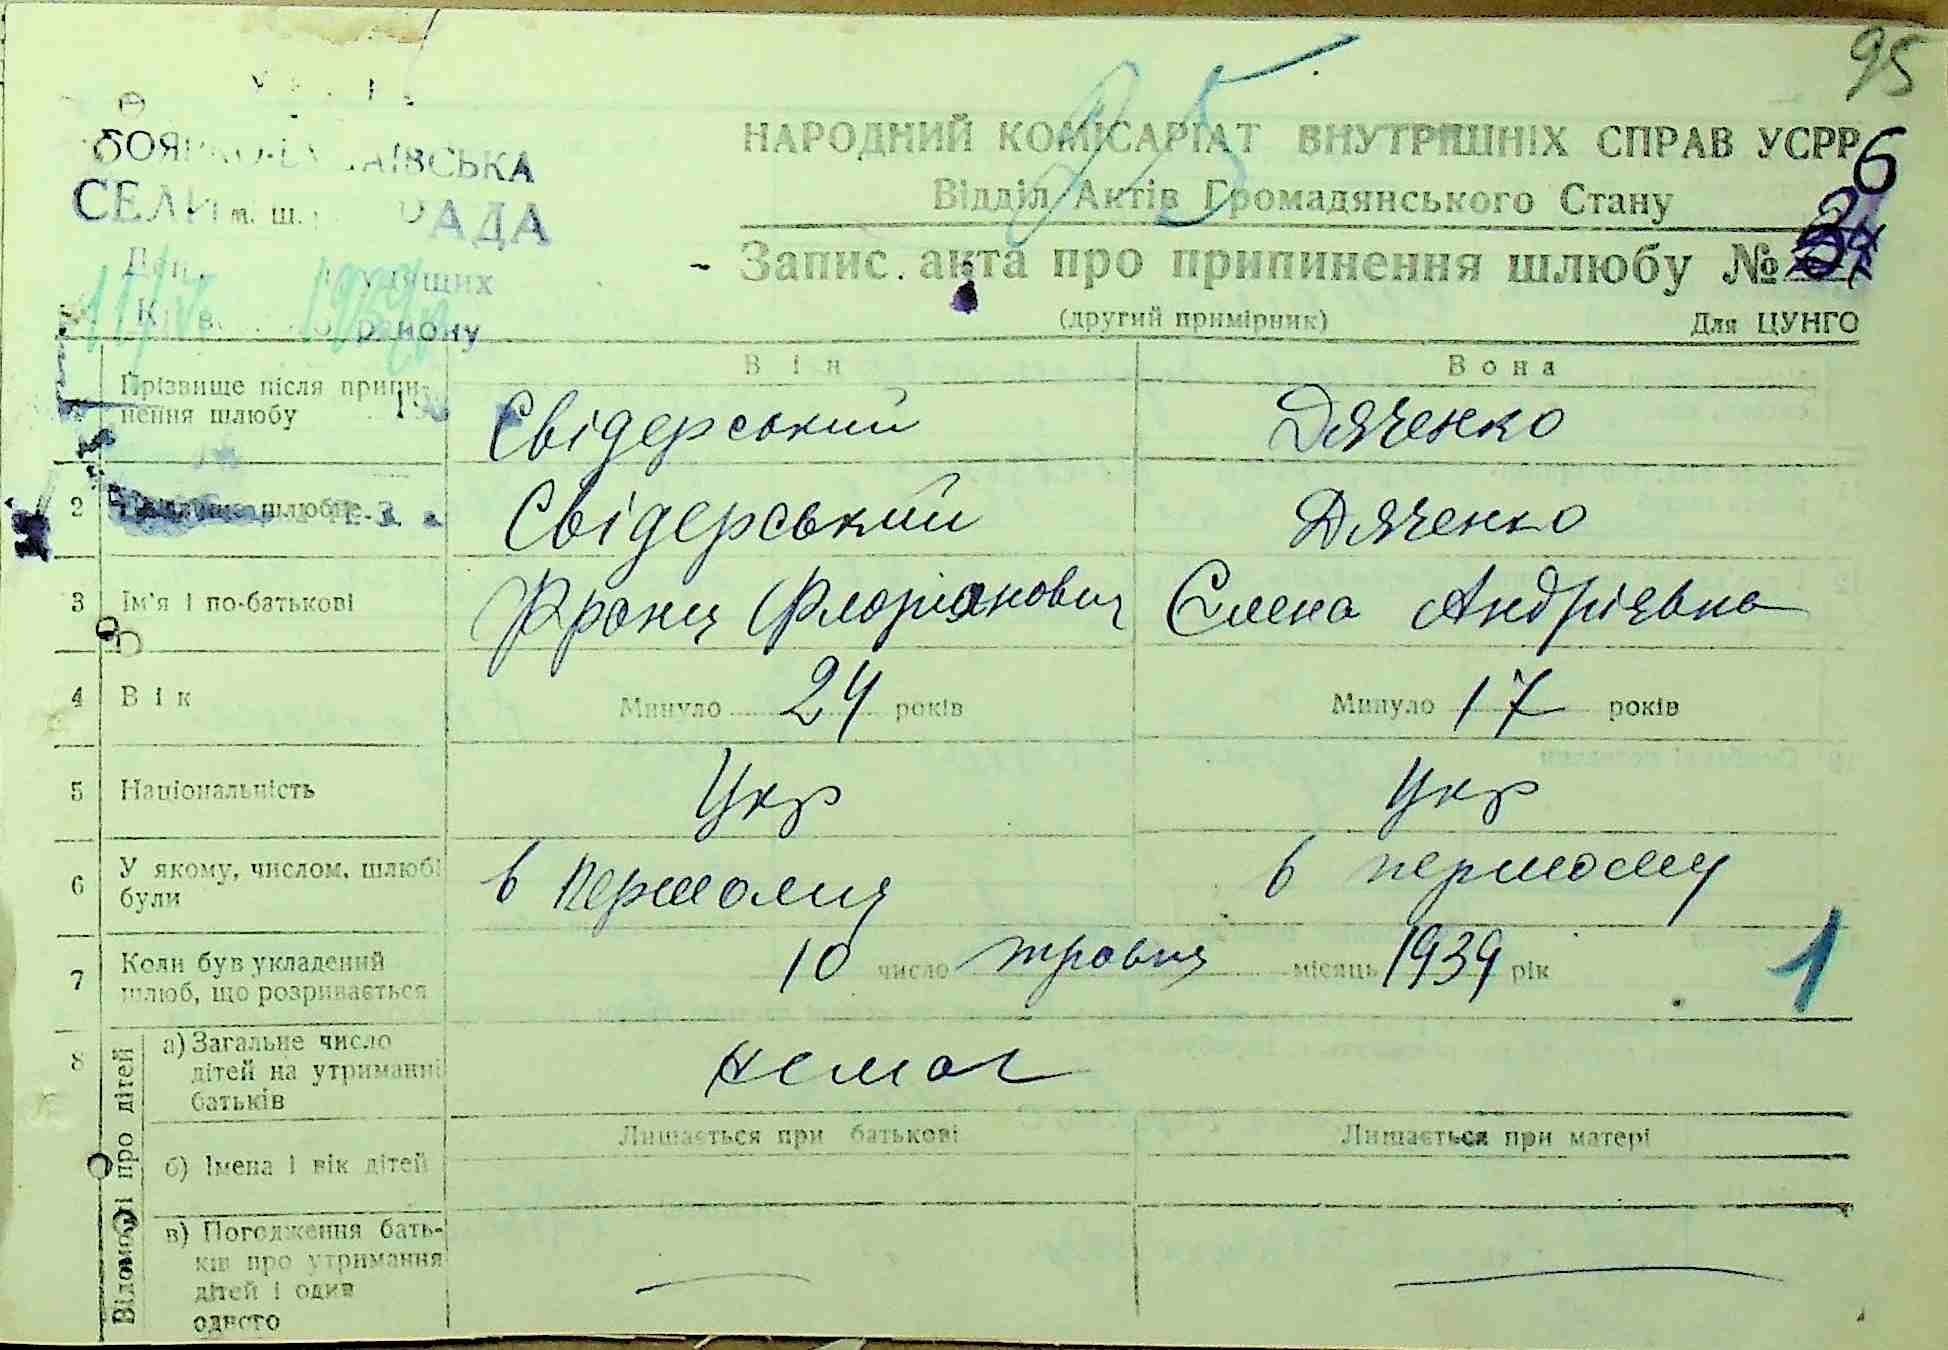 95
25
СЕЛИ м. ш. РАДА
району
НАРОДНИЙ КОМІСАРІАТ ВНУТРІШНІХ СПРАВ УСРР
Відділ Актів Громадянського Стану
Запис акта про припинення шлюбу № 6
(другий примірник) Для ЦУНГО
Він Вона
Прізвище після припи-
нення шлюбу Свідерський Дяченко
2 шлюбне Свідерський Дяченко
3 Ім'я і по-батькові Франц Флоріанович Єлена Андріївна
4 Вік Минуло 24 років Минуло 17 років
5 Національність Укр Укр
6 У якому, числом, шлюбі
були в першому в першому
7 Коли був укладений
шлюб, що розривається 10 число травня місяць 1939 рік
1
8 Відомості про дітей
а) Загальне число
дітей на утриманні
батьків немає
Лишається при батькові Лишається при матері
б) Імена і вік дітей
в) Погодження бать-
ків про утримання
дітей і один
одного